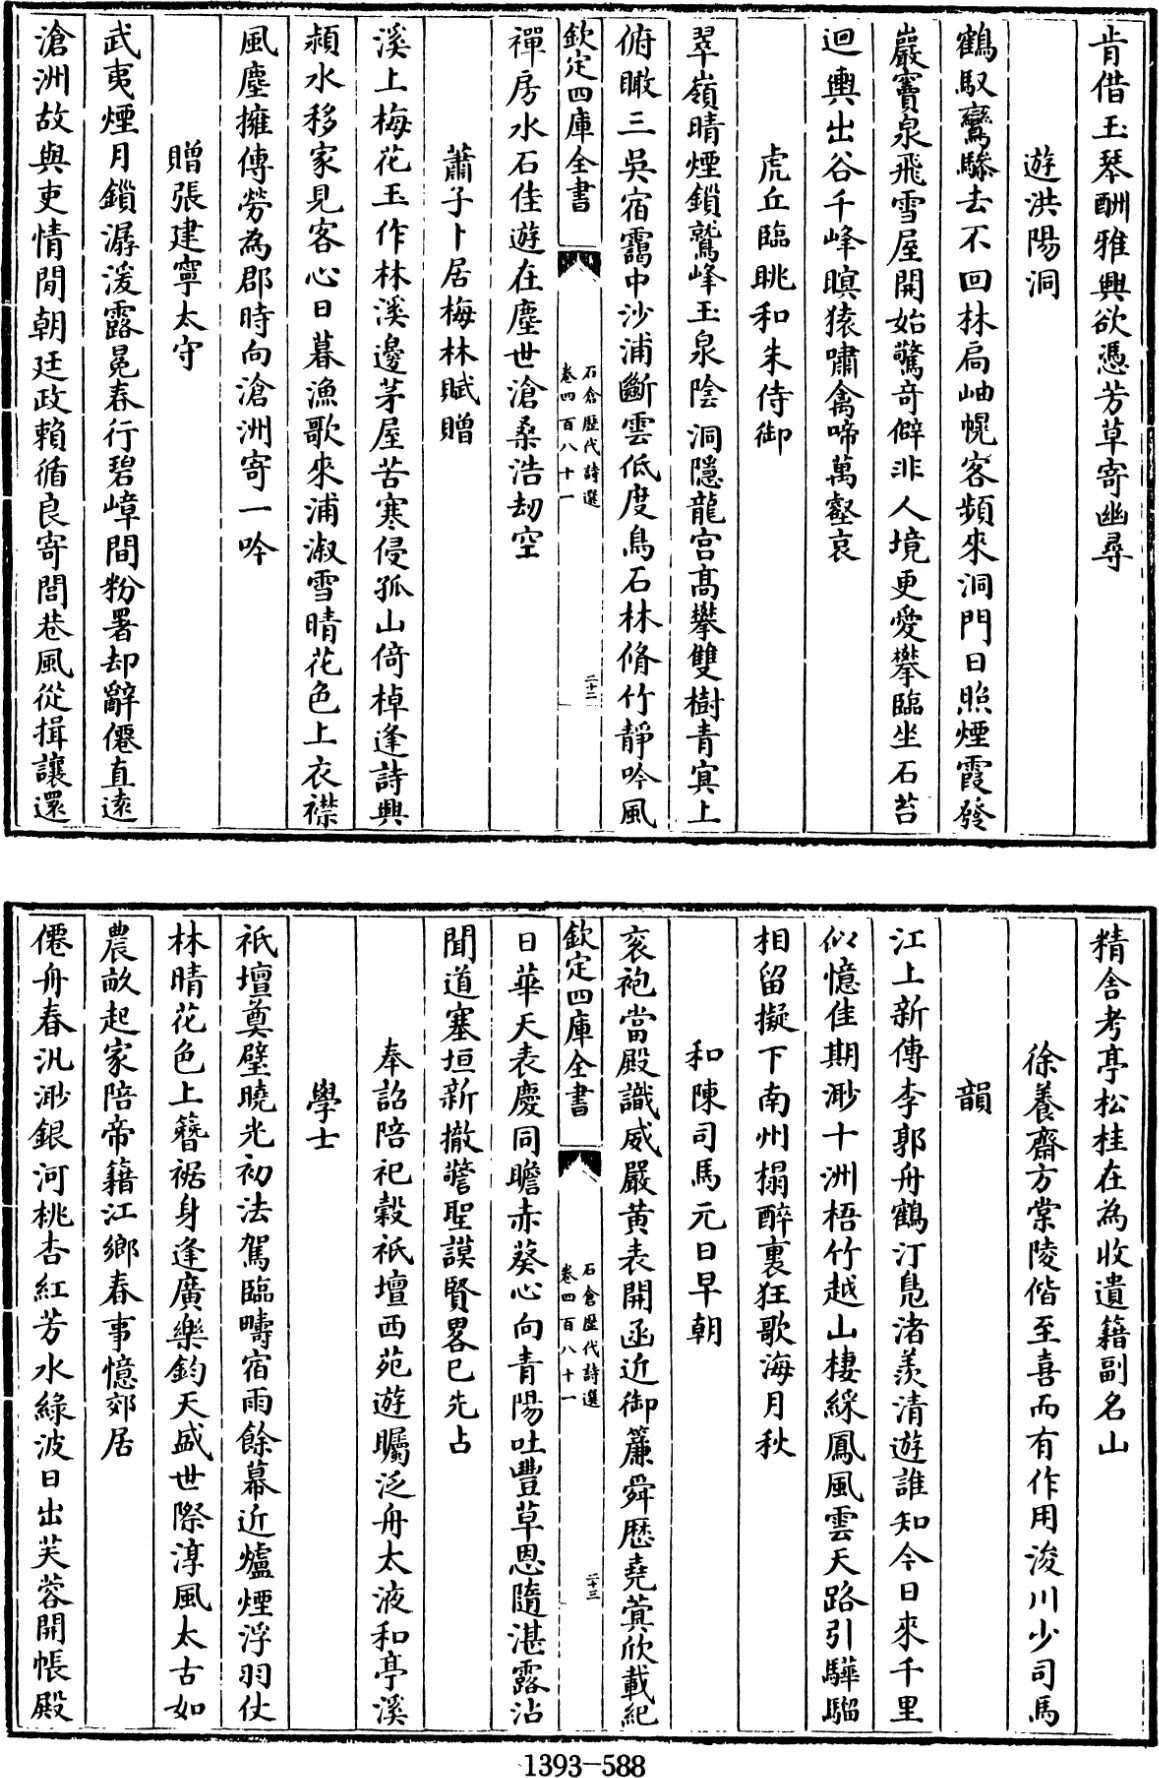 肯借玉琴酬雅興欲憑芳草寄幽尋
遊洪陽洞
鶴馭鸞驂去不回林扃岫幌客頻來洞門日照煙霞發
巖竇泉飛雪屋開始驚奇僻非人境更愛攀臨坐石苔
迴輿出谷千峰暝猿嘯禽啼萬壑哀
虎丘臨眺和朱侍御
翠嶺晴煙鎖鷲峰玉泉陰洞隱龍宫髙攀雙樹青冥上
俯瞰三吳宿靄中沙浦斷雲低度鳥石林脩竹靜吟風
欽定四庫全書
石倉歷代詩選
卷四百八十一
二十二
禪房水石佳遊在塵世滄桑浩刧空
蕭子卜居梅林賦贈
溪上梅花玉作林溪邊茅屋苦寒侵孤山倚棹逢詩興
潁水移家見客心日暮漁歌來浦淑雪晴花色上衣襟
風塵擁傳勞為郡時向滄洲寄一吟
贈張建寧太守
武夷煙月鎖潺湲露冕春行碧嶂間粉署却辭僊直逺
滄洲故與吏情閒朝廷政賴循良寄閭巷風從揖讓還
精舍考亭松桂在為收遺籍副名山
徐養齋方棠陵偕至喜而有作用浚川少司馬
韻
江上新傳李郭舟鶴汀凫渚羨清遊誰知今日來千里
似憶佳期渺十洲梧竹越山棲綵鳳風雲天路引驊騮
相留擬下南州榻醉裏狂歌海月秋
和陳司馬元日早朝
衮袍當殿識威嚴黄表開函近御簾舜歴堯蓂欣載紀
欽定四庫全書
石倉歷代詩選
卷四百八十一
二十三
日華天表慶同瞻赤葵心向青陽吐豐草恩隨湛露沾
聞道塞垣新撤警聖謨賢畧已先占
奉詔陪祀穀祇壇西苑遊矚泛舟太液和亭溪
學士
祇壇奠璧曉光初法駕臨疇宿雨餘幕近爐煙浮羽仗
林晴花色上簪裾身逢廣樂鈞天盛世際淳風太古如
農畝起家陪帝籍江鄉春事憶郊居
僊舟春汎渺銀河桃杏紅芳水綠波日出芙蓉開帳殿
1393-588